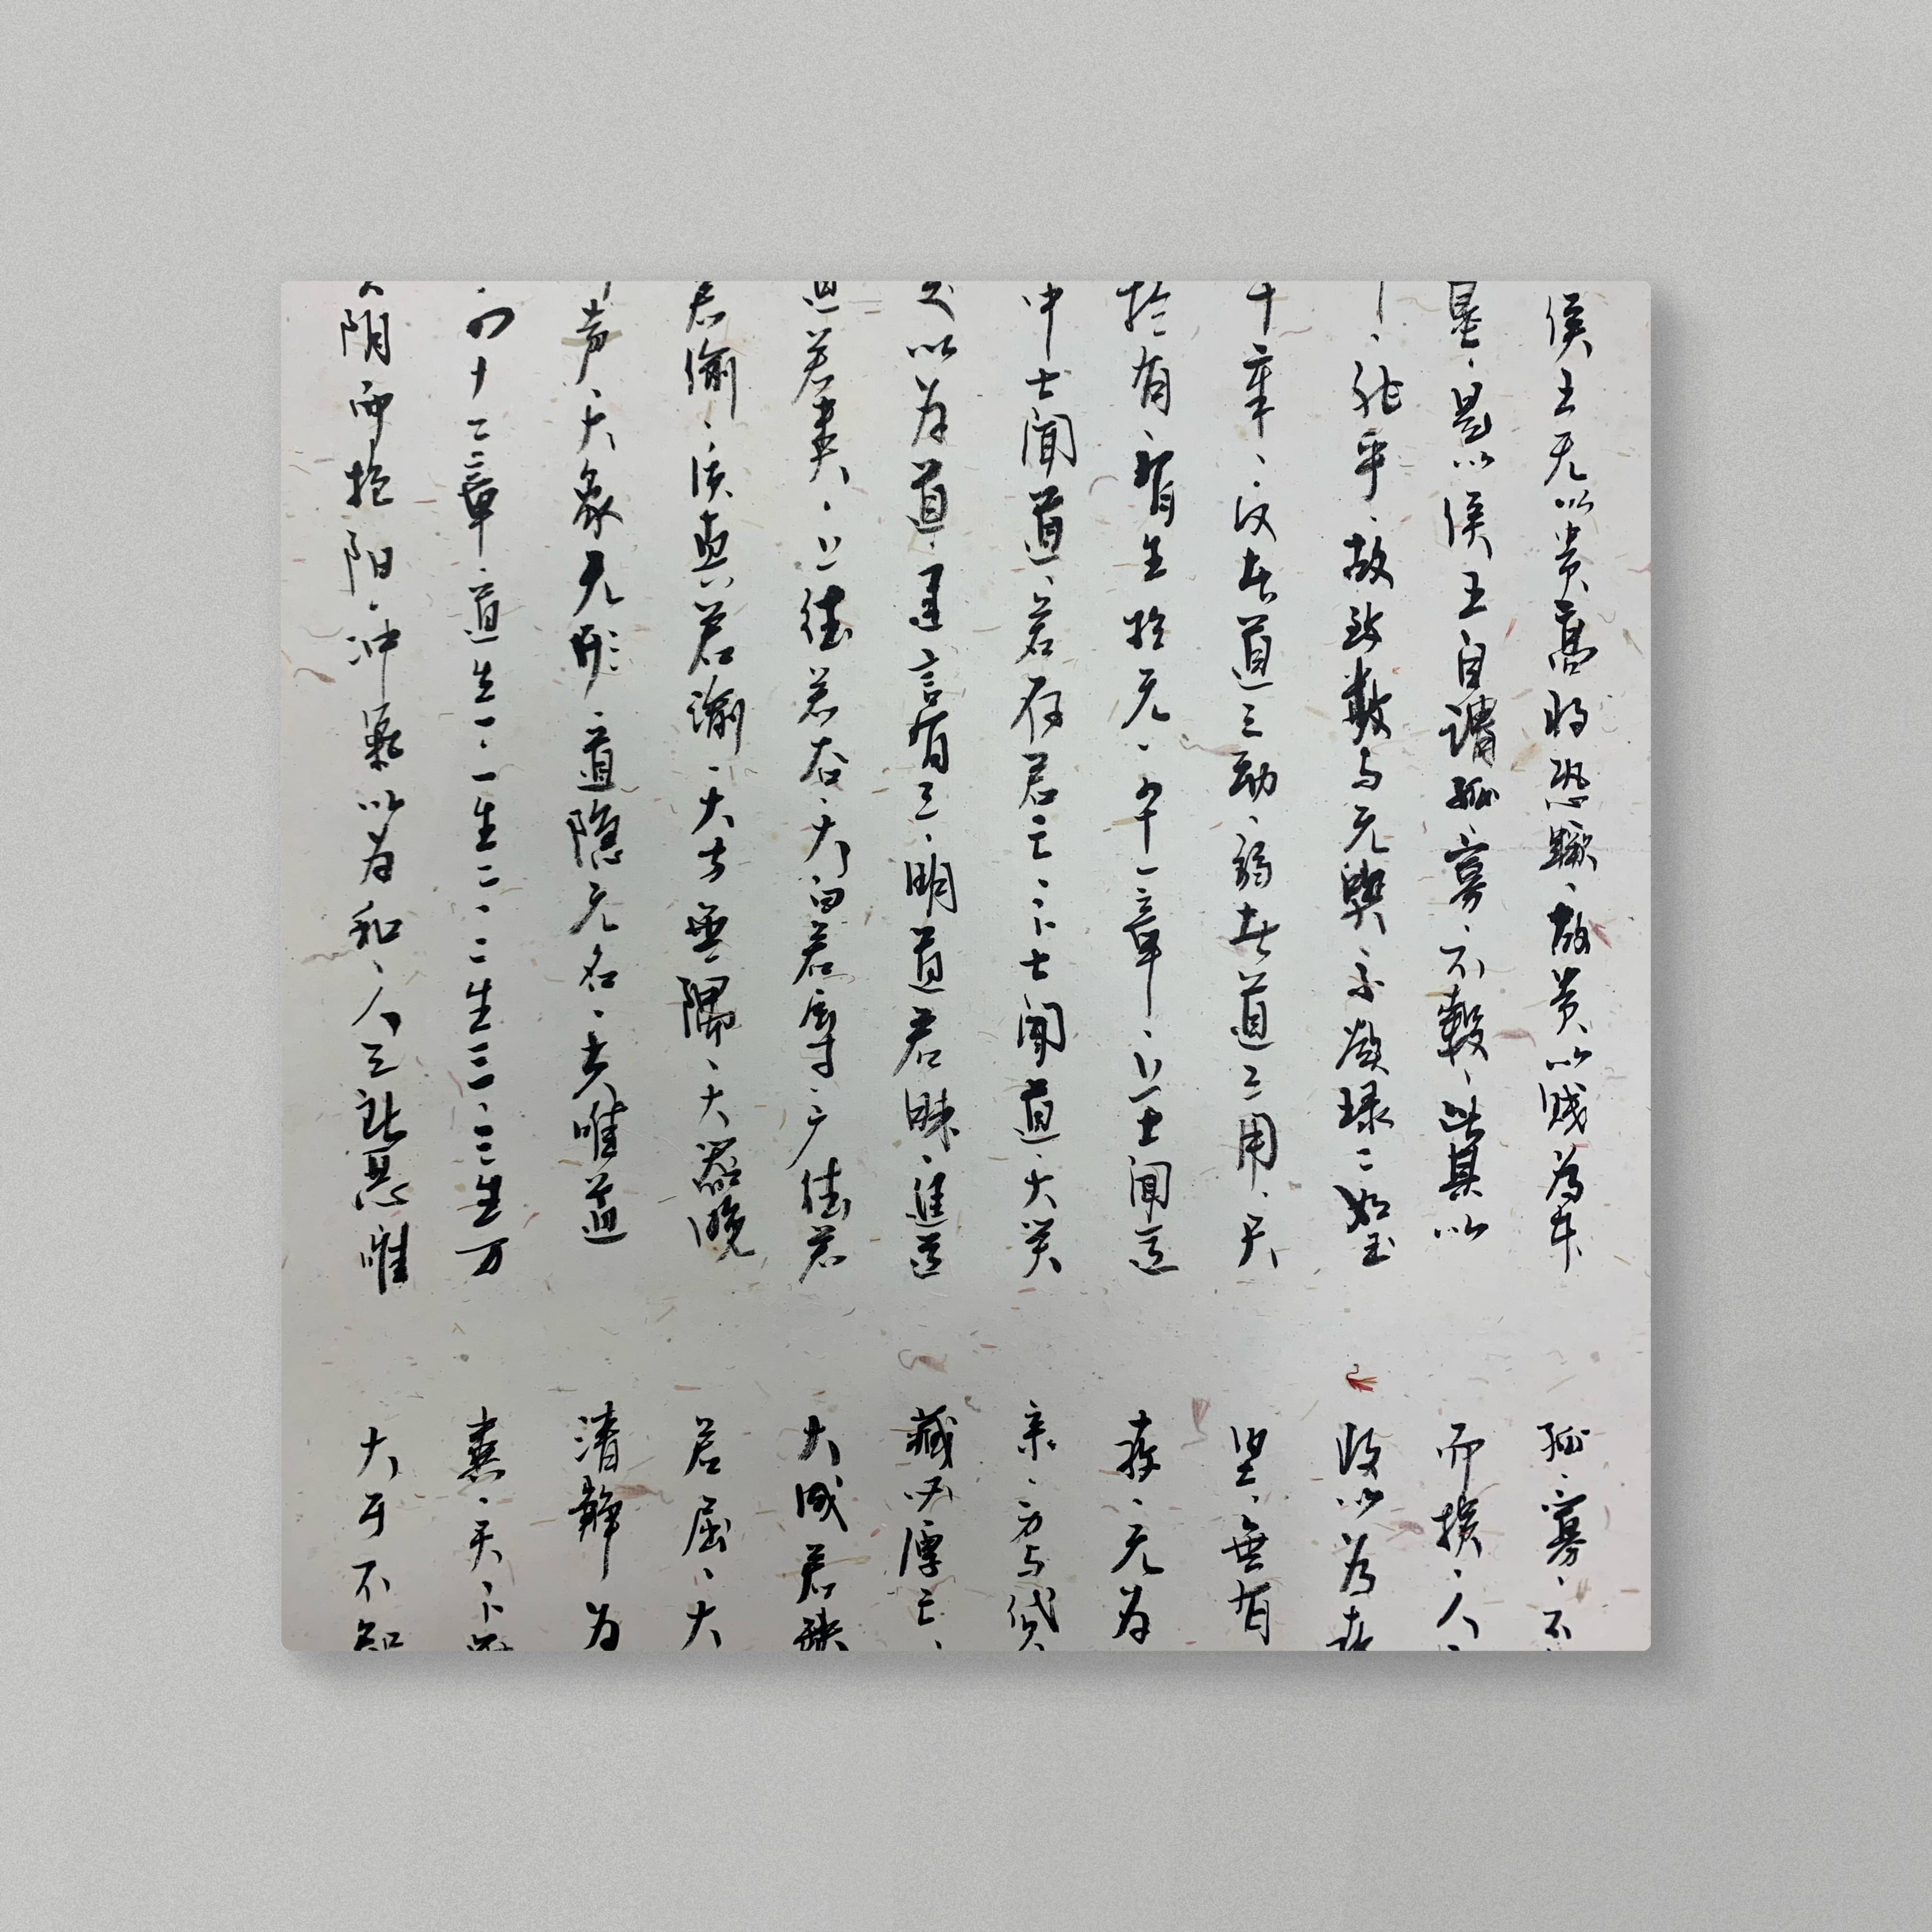 侯王无以贵高将恐蹶、故贵以贱为本
是以侯王自谓孤寡、不毂、此其以
非乎、故致数与无舆、不欲琭二如玉
十章、反者道之动、弱者道之用、天
於有、有生於无、四十一章、上士闻道
中士闻道、若存若亡、下士闻道、大笑
以为道、建言有之、明道若昧、进道
道若类、上德若谷、大白若辱、广德若
若偷、质真若渝、大方無隅、大器晚
声、大象无形、道隐无名、夫唯道
四十二章、道生一、一生二、二生三、三生万
阴而抱阳、冲氣以为和、人之所恶唯
孤、寡、不
而损、人
收以为
坚、無有
存、无为
亲、身与货
藏必厚亡、
大成若缺
若屈、大
清静为
天下
大于不知